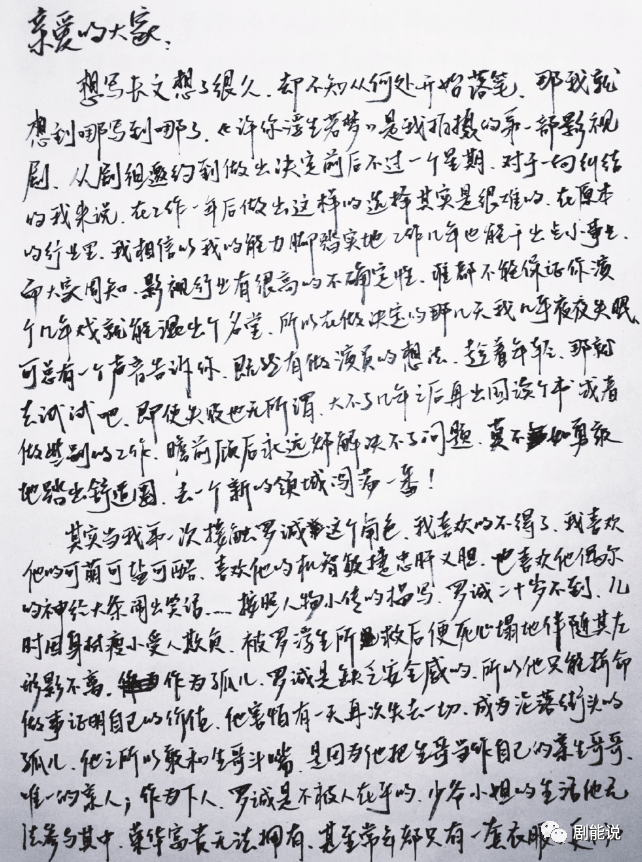 亲爱的大家:
想写长文想了很久,却不知从何处开始落笔,那我就
想到哪写到哪了。《许你浮生若梦》是我拍摄的第一部影视
剧,从剧组邀约到做出决定前后不过一个星期。对于一向纠结
的我来说,在工作一年后做出这样的选择其实是很难的。在原本
的行业里,我相信以我的能力脚踏实地工作几年也能干出点小事业,
而大家周知,影视行业有很高的不确定性,谁都不能保证你演
个几年戏就能混出个名堂,所以在做决定的那几天我几乎夜夜失眠,
可总有一个声音告诉你,既然有做演员的想法,趁着年轻,那就
去试试吧,即使失败也无所谓,大不了几年之后再出国读个书或者
做些别的工作。瞻前顾后永远都解决不了问题,莫不如勇敢
地踏出舒适圈,去一个新的领域闯荡一番!
其实当我第一次接触罗诚这个角色,我喜欢的不得了,我喜欢
他的可萌可盐可酷,喜欢他的机智敏捷忠肝义胆,也喜欢他偶尔
的神经大条闹出笑话……按照人物小传的描写,罗诚二十岁不到,儿
时因身材瘦小受人欺负,被罗浮生所救后便死心塌地伴随其左
形影不离,作为孤儿,罗诚是缺乏安全感的,所以他只能拼命
做事证明自己的价值,他害怕有一天再次失去一切,成为沦落街头的
孤儿,他之所以敢和生哥斗嘴,是因为他把生哥当作自己的亲生哥哥,
唯一的亲人;作为下人,罗诚是不被人在乎的,少爷小姐的生活他无
法参与其中,荣华富贵无法拥有,甚至常年都只有一套衣服
剧能说